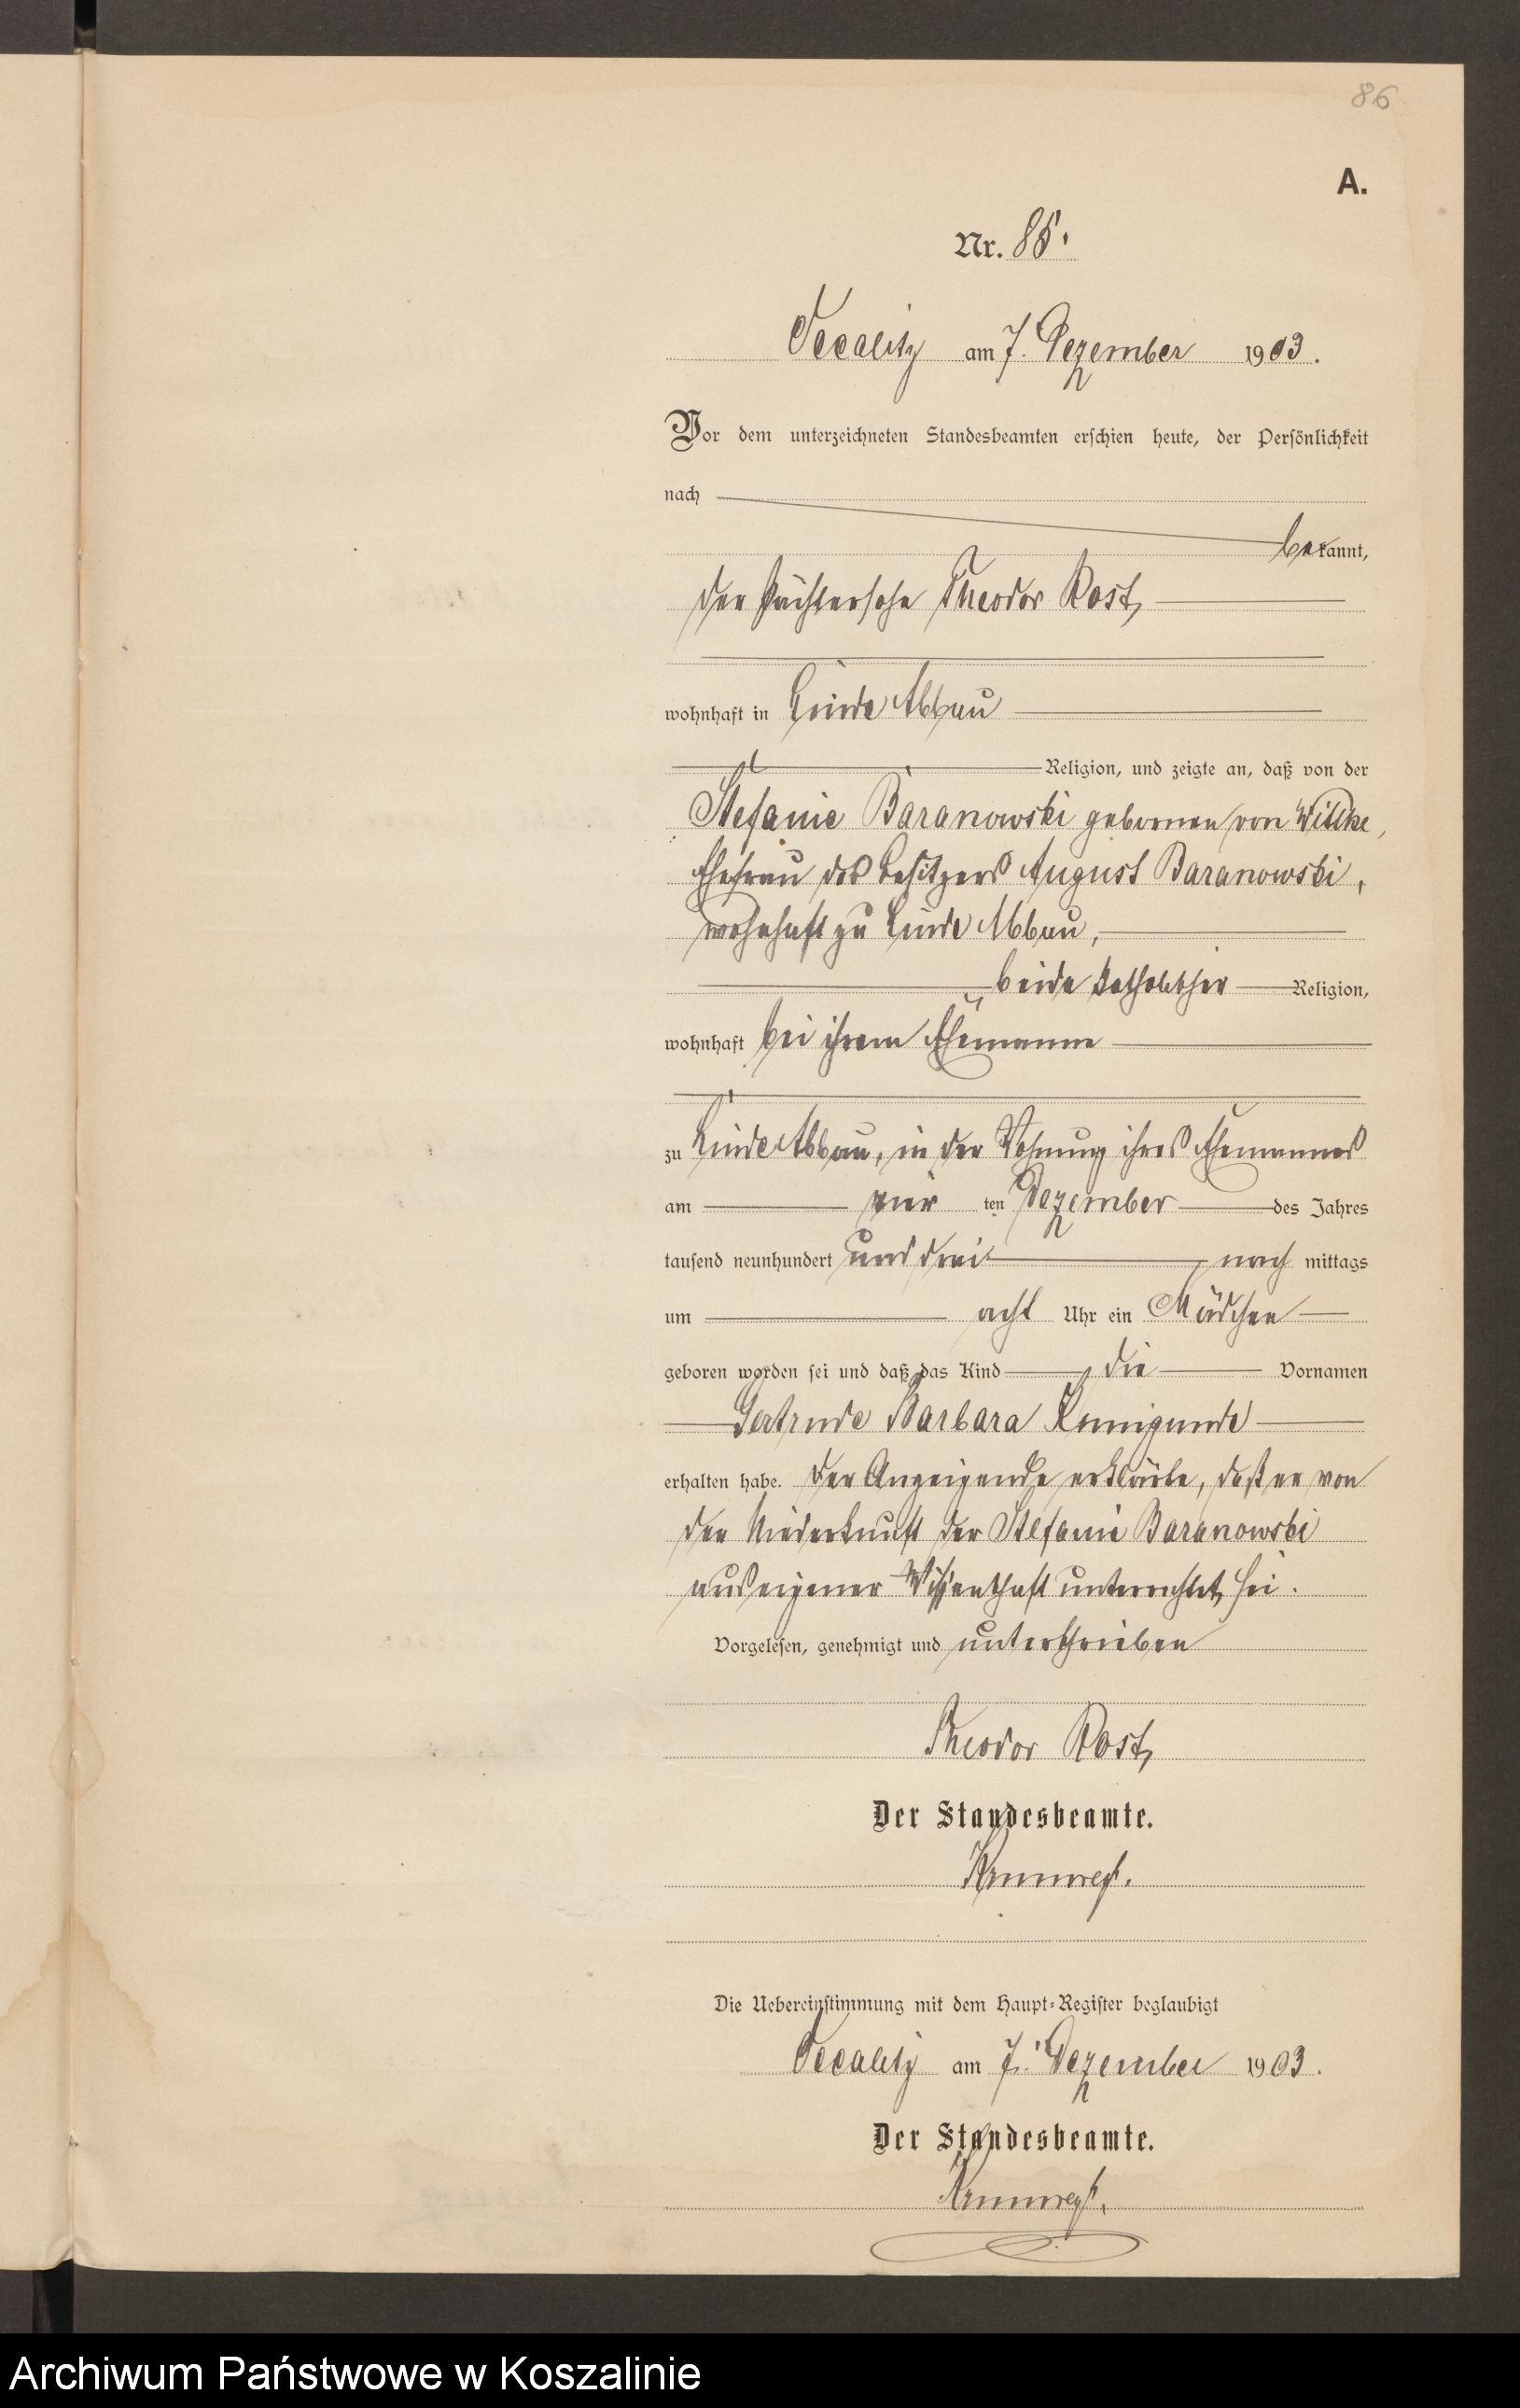 86
A.
Nr. 85.
am 7. Dezember 1903.
Vor dem unterzeichneten Standesbeamten erschien heute, der Persönlichkeit
nach
bekannt,
der Pächtersohn Theodor Rost,
wohnhaft in Linde Abbau
Religion, und zeigte an, daß von der
Stefanie Baranowski gebornen von
Ehefrau des Besitzers August Baranowski,
wohnhaft zu Linde Abbau,
beide katholischer Religion,
wohnhaft bei ihrem Ehemanne
zu Linde Abbau, in der Wohnung ihres Ehemannes
am vier ten Dezember des Jahres
tausend neunhundert und drei nach mittags
um acht Uhr ein Mädchen
geboren worden sei und daß das Kind die Vornamen
Gertrude Barbara Kunigunde
erhalten habe. Der Anzeigende erklärte, daß er von
der Niederkunft der Stefanie Baranowski
aus eigener Wissenschaft unterrichtet sei.
Vorgelesen, genehmigt und unterschrieben
Theodor Rost,
Der Standesbeamte.
Die Uebereinstimmung mit dem Haupt-Register beglaubigt
am 7. Dezember 1903.
Der Standesbeamte.
Archiwum Państwowe w Koszalinie